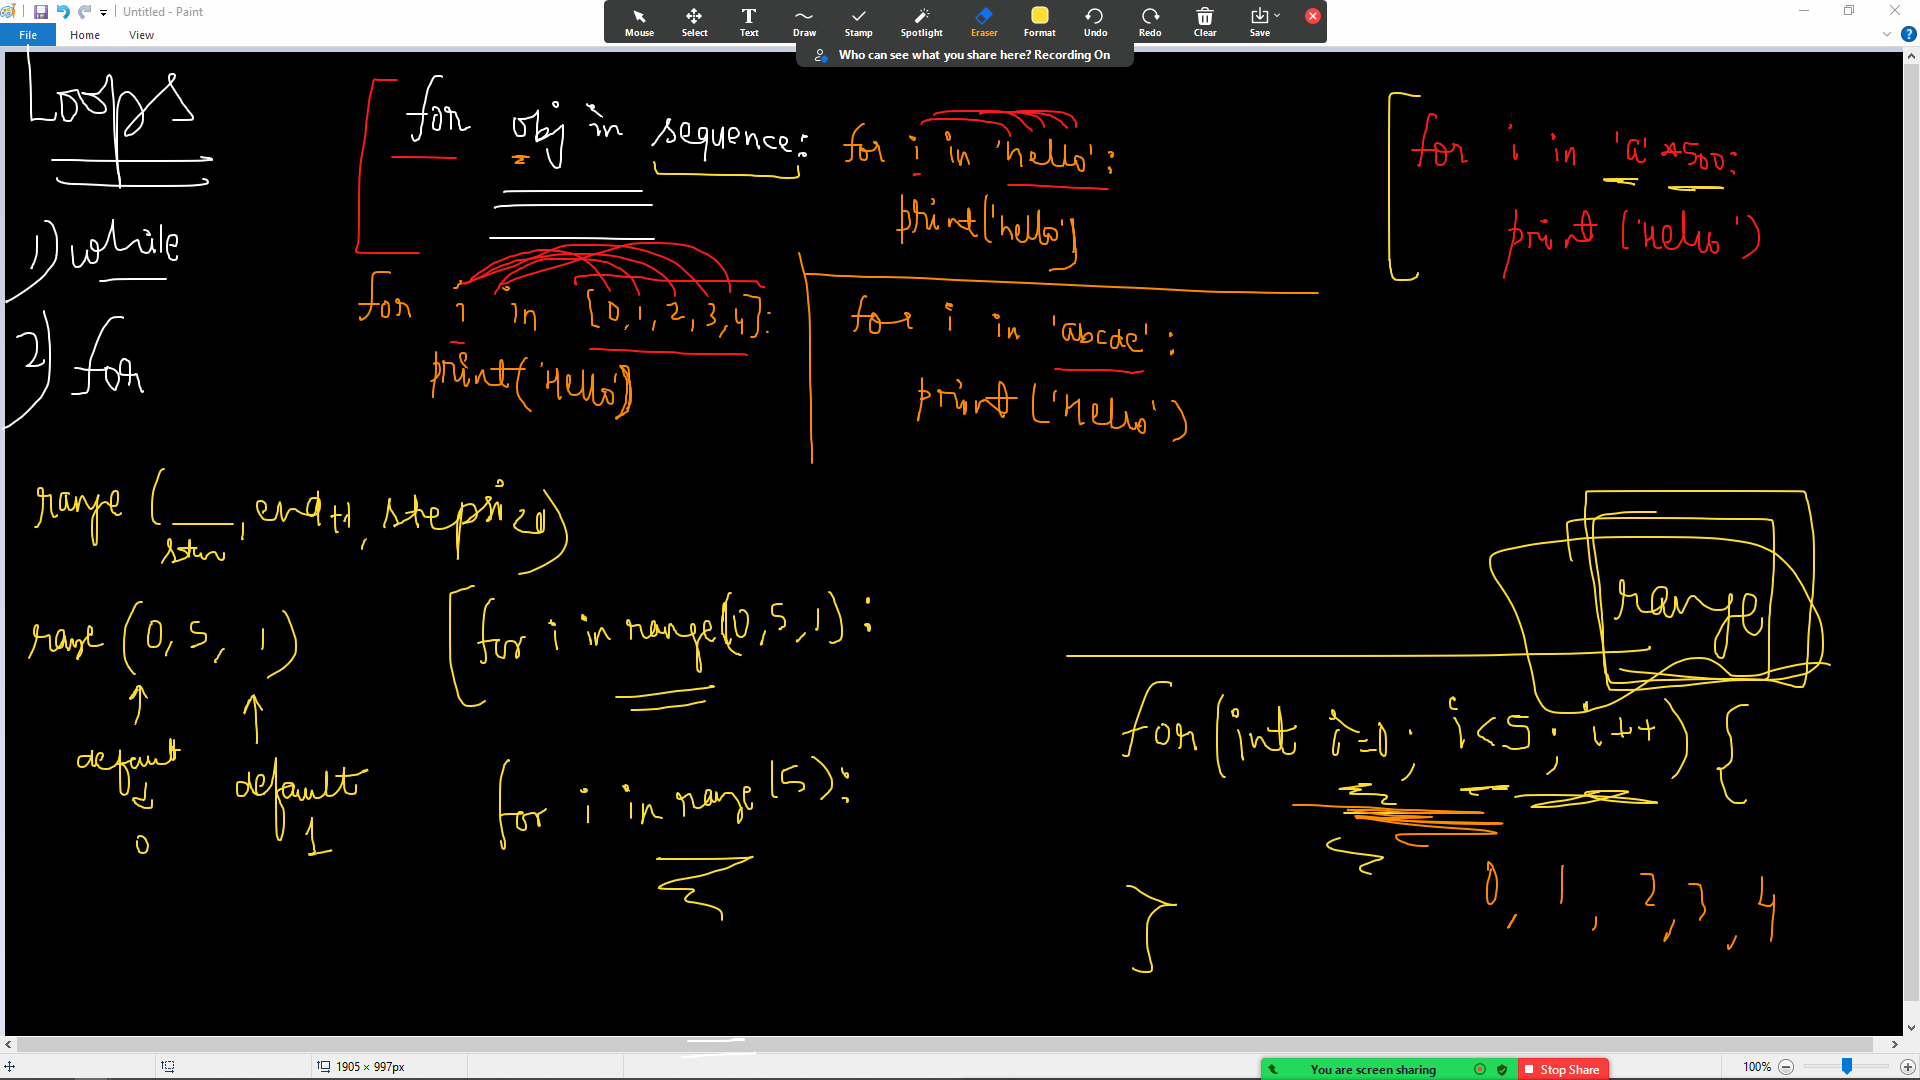 Untitled - Paint
File Home View
Mouse Select Text Draw Stamp Spotlight Eraser Format Undo Redo Clear Save
Who can see what you share here? Recording On
Loops
1) while
2) for
for obj in sequence:
for i in 'hello':
print('hello')
for i in 'a' *500:
print ('Hello')
for i in [0,1,2,3,4]:
print('Hello')
for i in 'abcde':
print ('Hello')
range ( , end+1, stepsize)
range (0, 5, 1)
default
0
default
1
for i in range(0,5,1):
for i in range(5):
range
for(int i=0; i<5; i++) {
0, 1, 2, 3, 4
}
1905 × 997px
You are screen sharing
Stop Share
100%